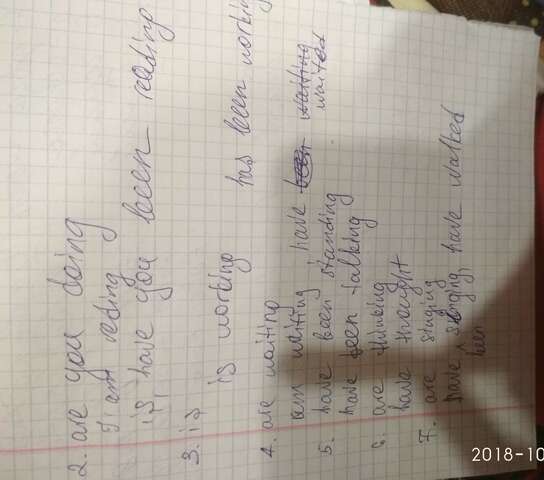 2. are you doing
I am reding
is, have you been reading
3. is
is working has been working
4. are waiting
am waiting have waited
5. have been standing
have been talking
6. are thinking
have thought
7. are singing
have been singing, have walked
2018-10